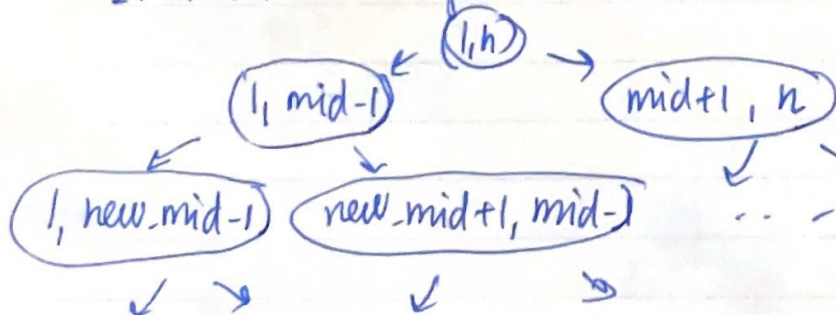 (1,n)
1, mid-1
mid+1, n
1, new-mid-1
new-mid+1, mid-1
.. -